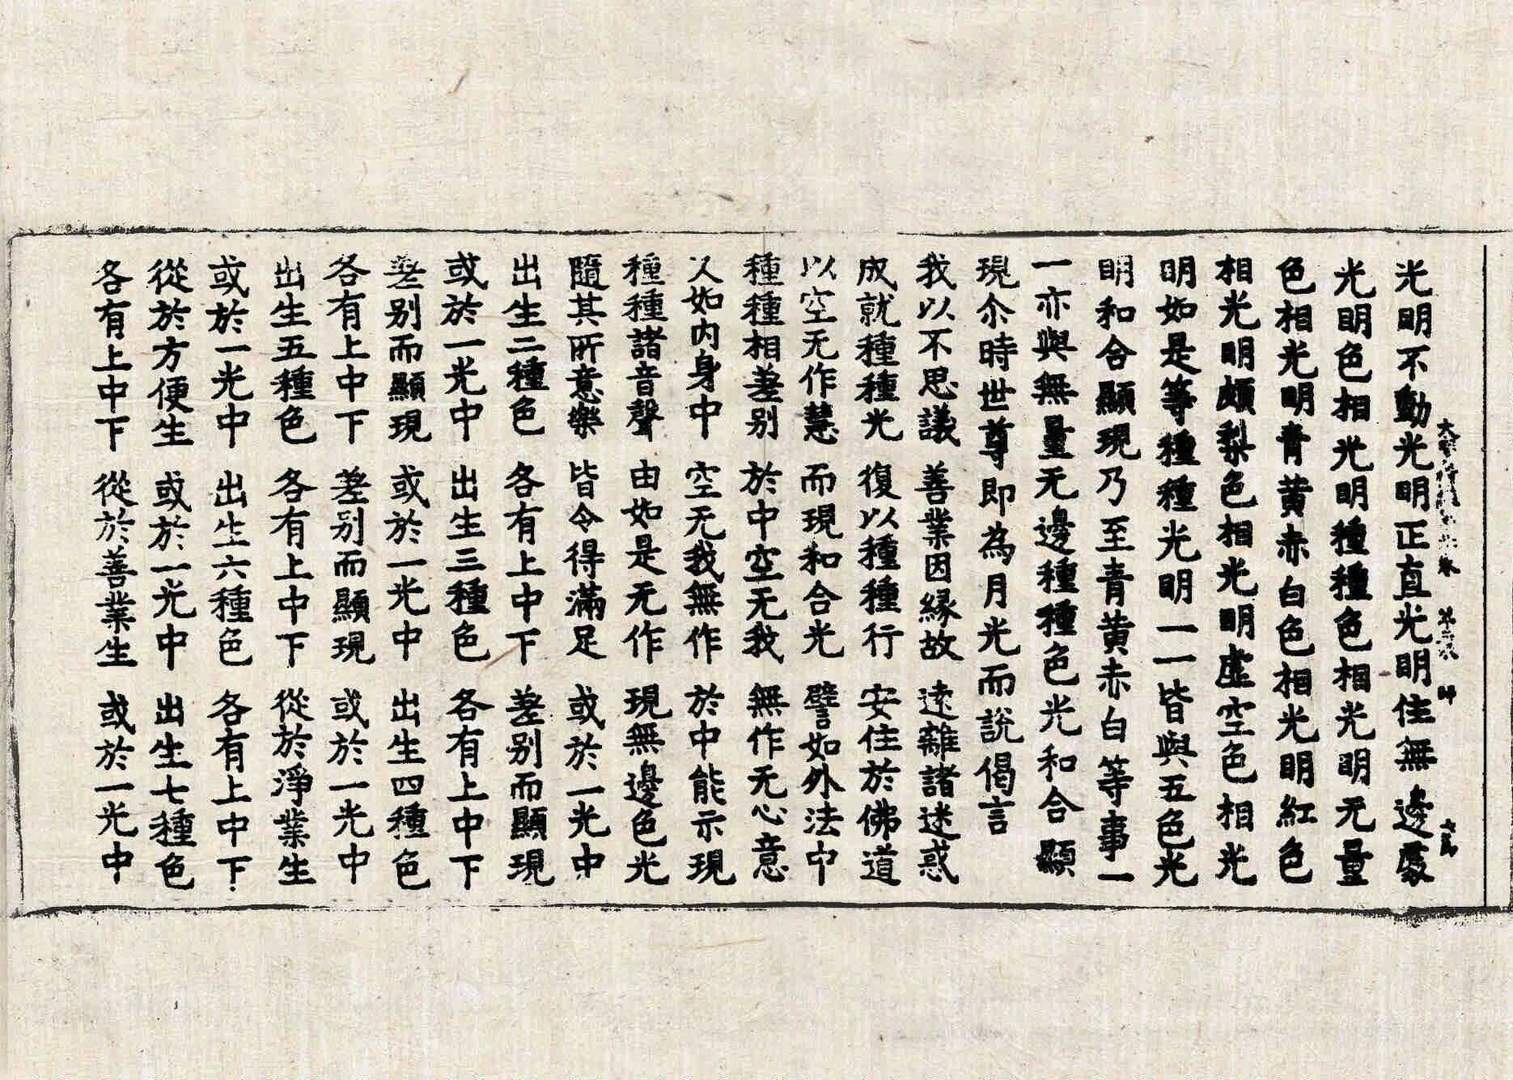 光明不動光明正直光明住無邊處
光明色相光明種種色相光明无量
色相光明青黃赤白色相光明紅色
相光明頗梨色相光明虛空色相光
明如是等種種光明一一皆與五色光
明和合顯現乃至青黃赤白等事一
一亦與無量无邊種種色光和合顯
現尒時世尊即為月光而說偈言
我以不思議 善業因緣故 遠離諸迷惑
成就種種光 復以種種行 安住於佛道
以空无作慧 而現和合光 譬如外法中
種種相差别 於中空无我 無作无心意
又如內身中 空无我無作 於中能示現
種種諸音聲 由如是无作 現無邊色光
隨其所意樂 皆令得滿足 或於一光中
出生二種色 各有上中下 差别而顯現
或於一光中 出生三種色 各有上中下
差别而顯現 或於一光中 出生四種色
各有上中下 差别而顯現 或於一光中
出生五種色 各有上中下 從於淨業生
或於一光中 出生六種色 各有上中下
從於方便生 或於一光中 出生七種色
各有上中下 從於善業生 或於一光中